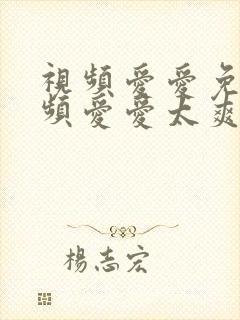 視頻愛愛免
頻愛愛太爽
楊志宏